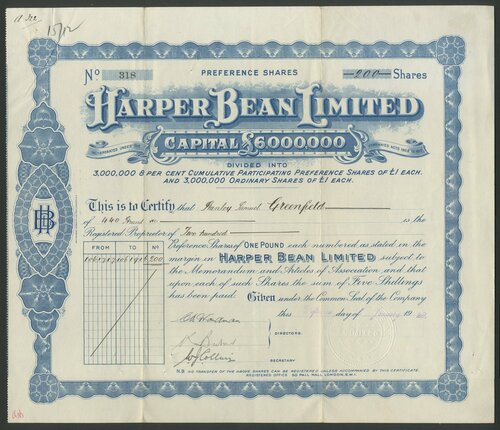 15/12
Nº 318 PREFERENCE SHARES 200 Shares
HARPER BEAN LIMITED
CAPITAL £6,000,000
DIVIDED INTO
3,000,000 8 PER CENT CUMULATIVE PARTICIPATING PREFERENCE SHARES OF £1 EACH.
AND 3,000,000 ORDINARY SHARES OF £1 EACH.
This is to Certify that Stanley Samuel Greenfield
of 440 is the
Registered Proprietor of Two hundred
FROM TO Nº
200
Preference Shares of ONE POUND each numbered as stated in the
margin in HARPER BEAN LIMITED subject to
the Memorandum and Articles of Association and that
upon each of such Shares the sum of Five Shillings
has been paid. Given under the Common Seal of the Company
this day of January 19
DIRECTORS.
SECRETARY
N.B. NO TRANSFER OF THE ABOVE SHARES CAN BE REGISTERED UNLESS ACCOMPANIED BY THIS CERTIFICATE.
REGISTERED OFFICE 50 PALL MALL, LONDON, S.W.1.
HB